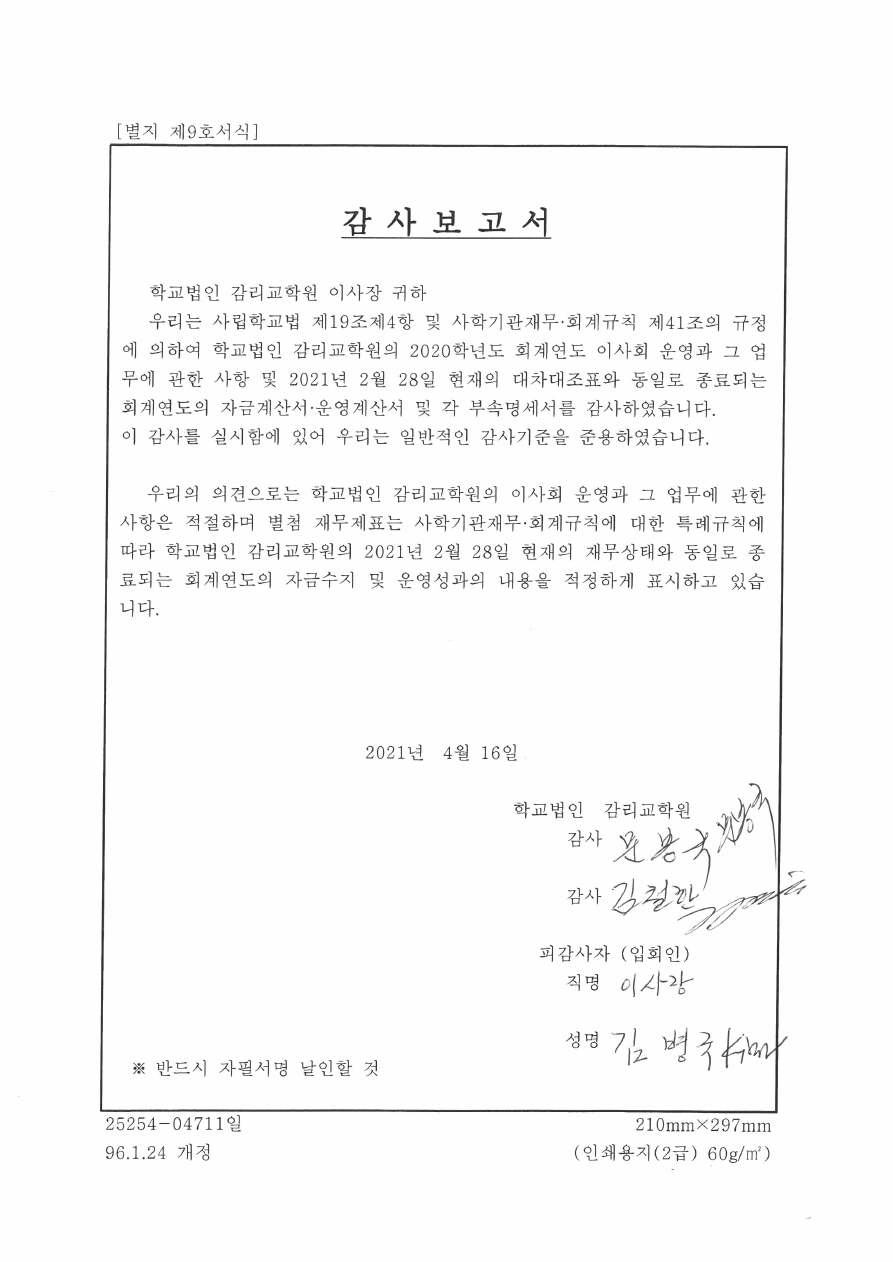 [별지 제9호서식]
감 사 보 고 서
학교법인 감리교학원 이사장 귀하
우리는 사립학교법 제19조제4항 및 사학기관재무·회계규칙 제41조의 규정
에 의하여 학교법인 감리교학원의 2020학년도 회계연도 이사회 운영과 그 업
무에 관한 사항 및 2021년 2월 28일 현재의 대차대조표와 동일로 종료되는
회계연도의 자금계산서·운영계산서 및 각 부속명세서를 감사하였습니다.
이 감사를 실시함에 있어 우리는 일반적인 감사기준을 준용하였습니다.
우리의 의견으로는 학교법인 감리교학원의 이사회 운영과 그 업무에 관한
사항은 적절하며 별첨 재무제표는 사학기관재무·회계규칙에 대한 특례규칙에
따라 학교법인 감리교학원의 2021년 2월 28일 현재의 재무상태와 동일로 종
료되는 회계연도의 자금수지 및 운영성과의 내용을 적정하게 표시하고 있습
니다.
2021년 4월 16일
학교법인 감리교학원
감사
감사 김철한
피감사자 (입회인)
직명 이사장
성명 김병국
※ 반드시 자필서명 날인할 것
25254-04711일 210mm×297mm
96.1.24 개정 (인쇄용지(2급) 60g/㎡)